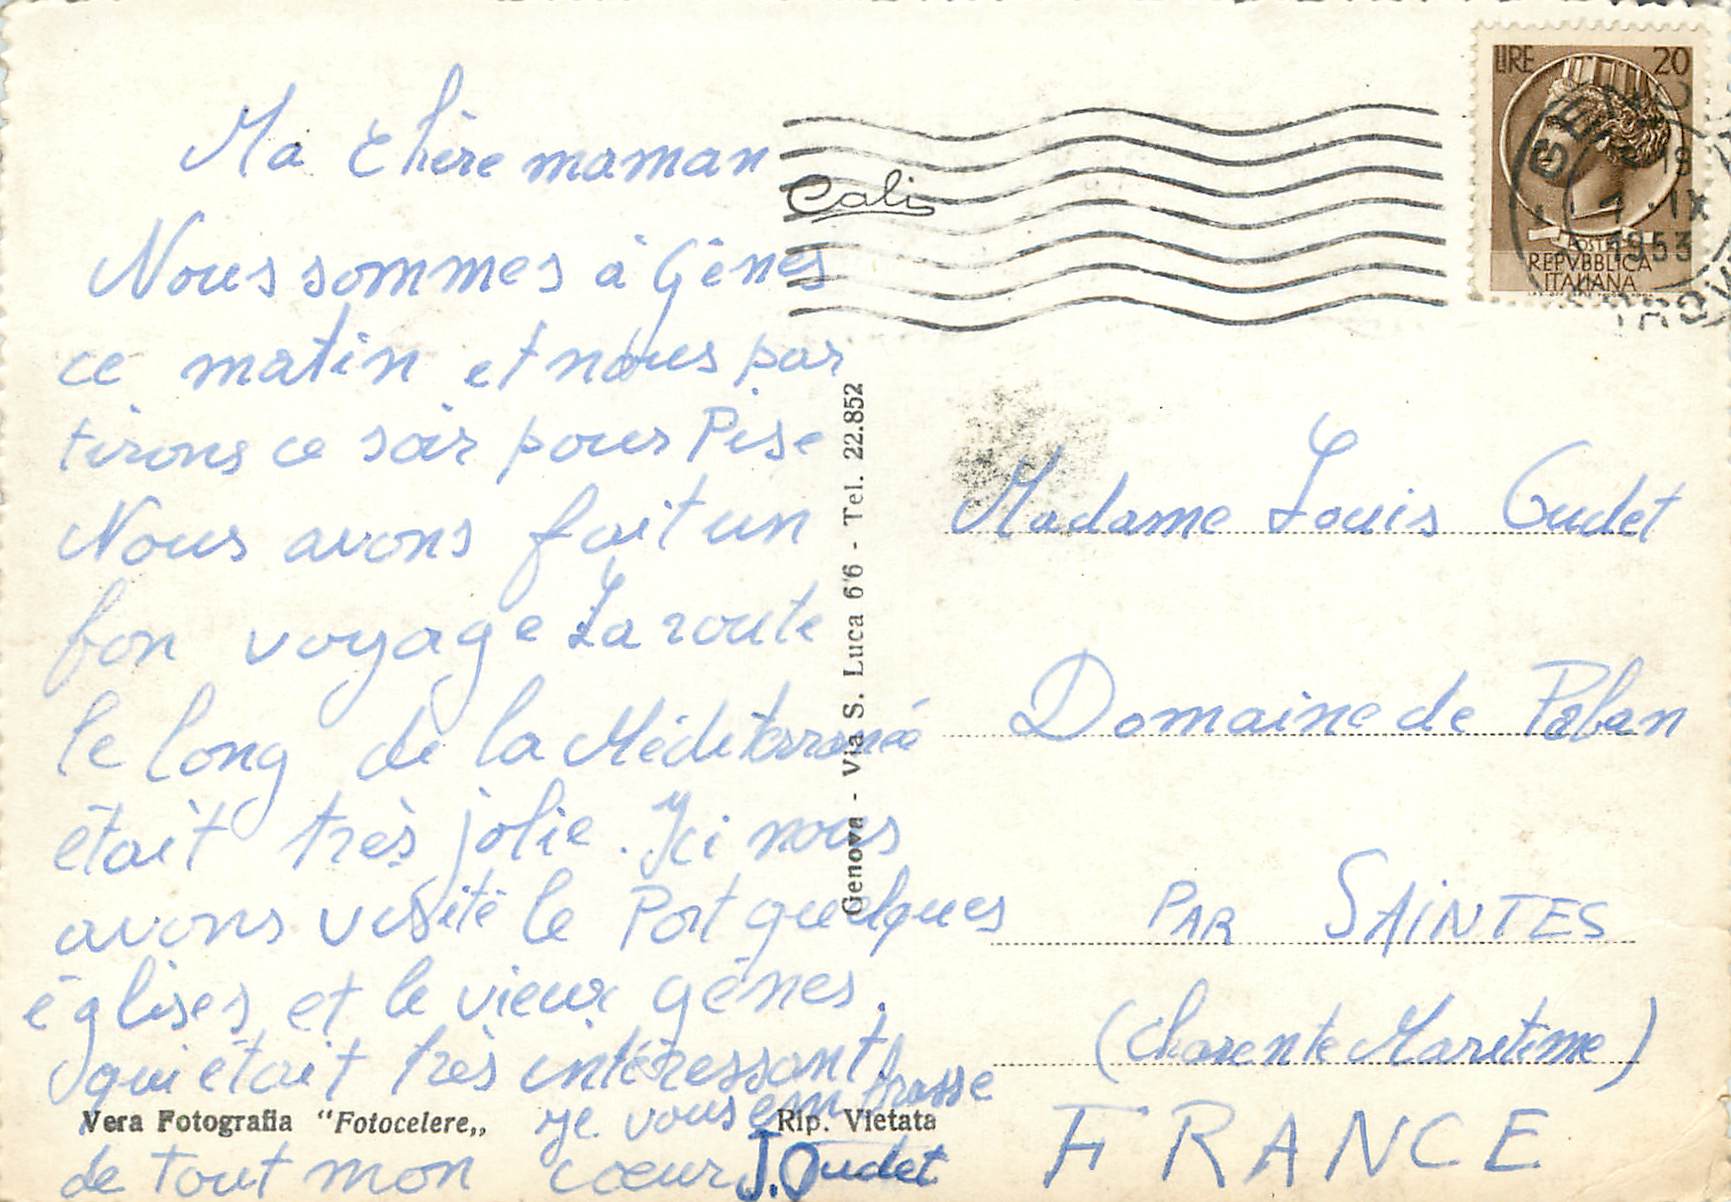 Ma chère maman
Nous sommes à Gênes
ce matin et nous par
tirons ce soir pour Pise
Nous avons fait un
bon voyage La route
le long de la Méditerranée
était très jolie. Ici nous
avons visité le Port quelques
églises et le vieux gênes.
qui était très intéressant
je vous embrasse
de tout mon coeur J. Oudet
Vera Fotografia "Fotocelere„
Rip. Vietata
Genova - Via S. Luca 6'6 - Tel. 22.852
Cali
LIRE 20
POSTE
REPVBBLICA
ITALIANA
19
1 . IX
1953
Madame Louis Oudet
Domaine de
PAR SAINTES
(Charente Maritime)
FRANCE